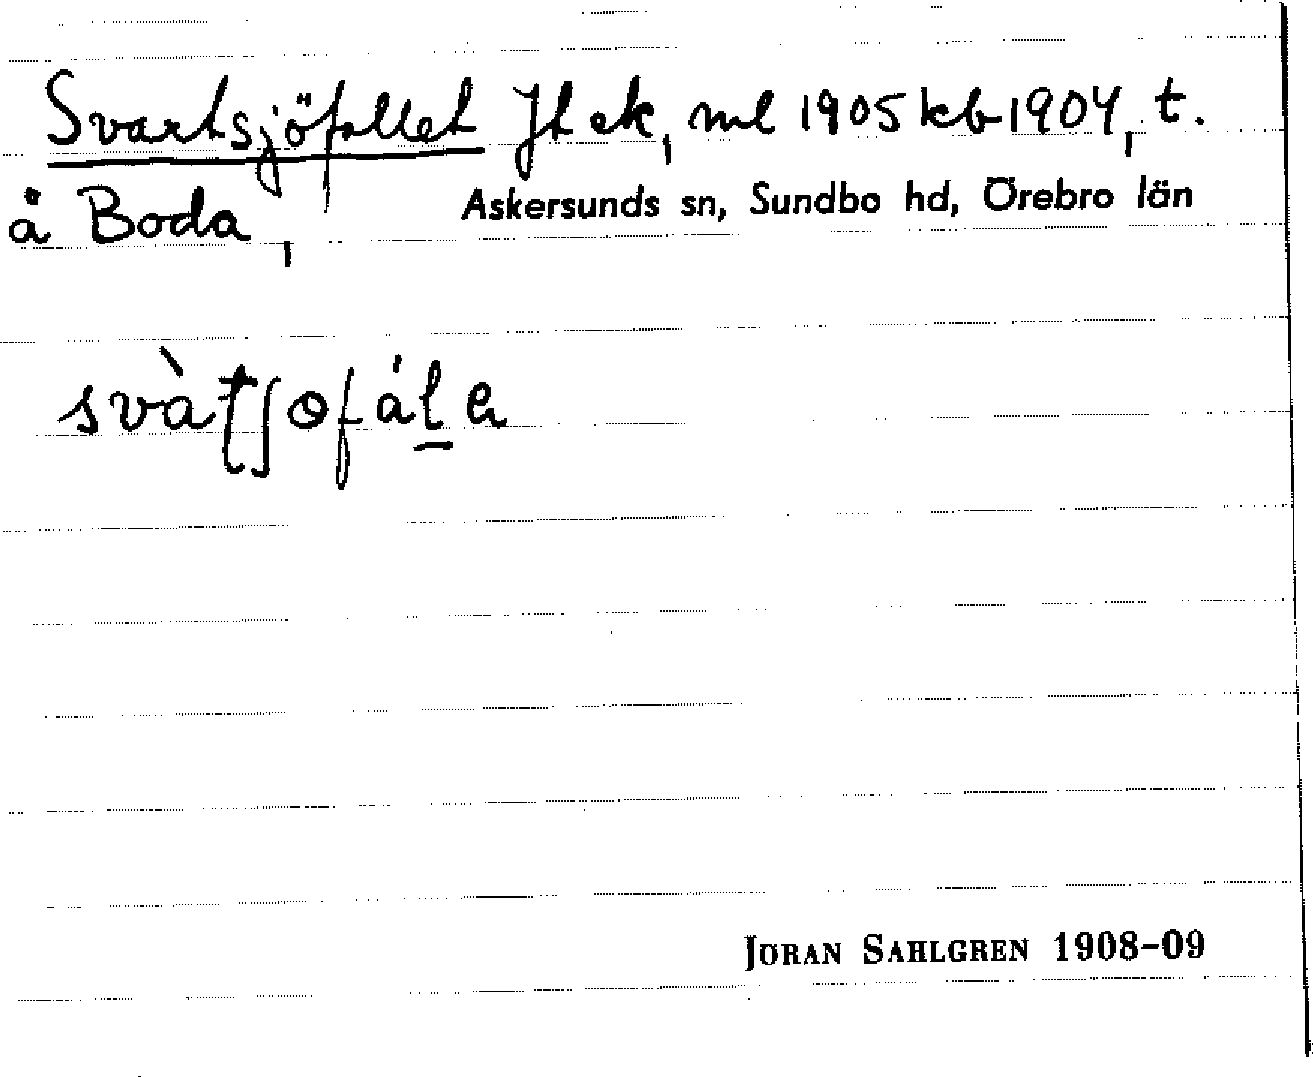 Svartsjöfallet Jt ek, ml 1905 kb 1904, t.
å Boda, Askersunds sn, Sundbo hd, Örebro län
svàtʃofáḻe
JÖRAN SAHLGREN 1908-09